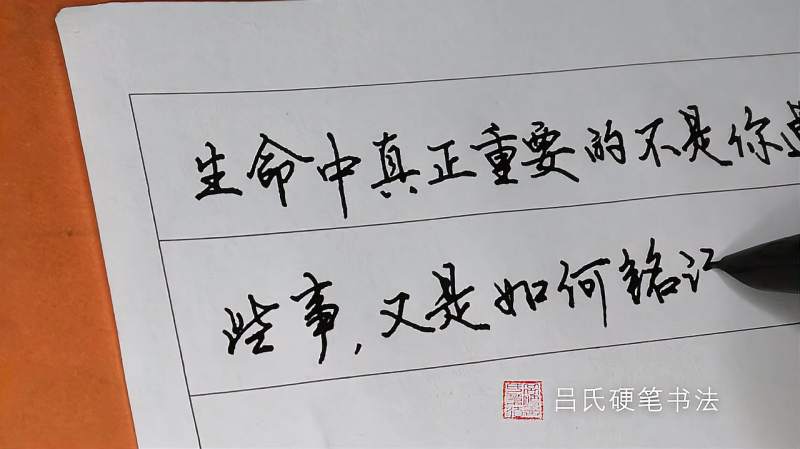 生命中真正重要的不是你
些事，又是如何铭记
吕氏硬笔书法